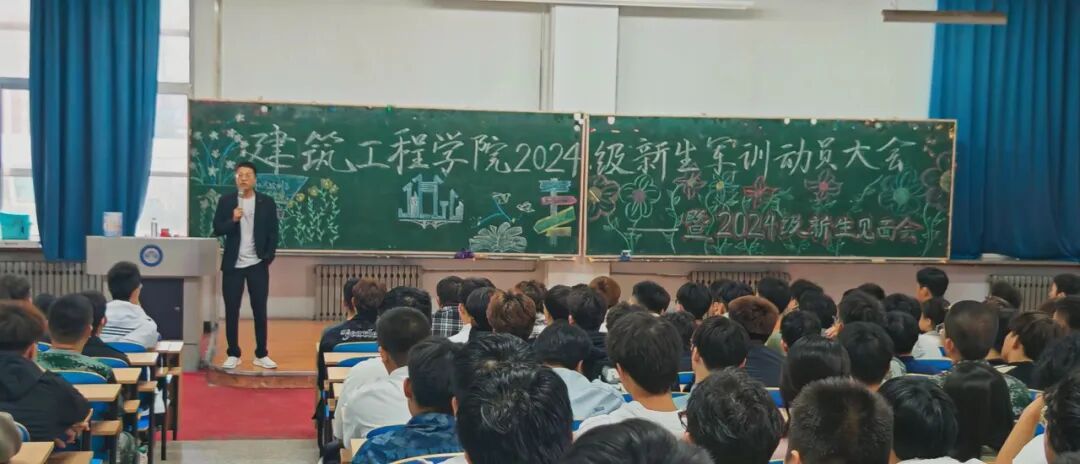 建筑工程学院2024级新生军训动员大会
——暨2024级新生见面会